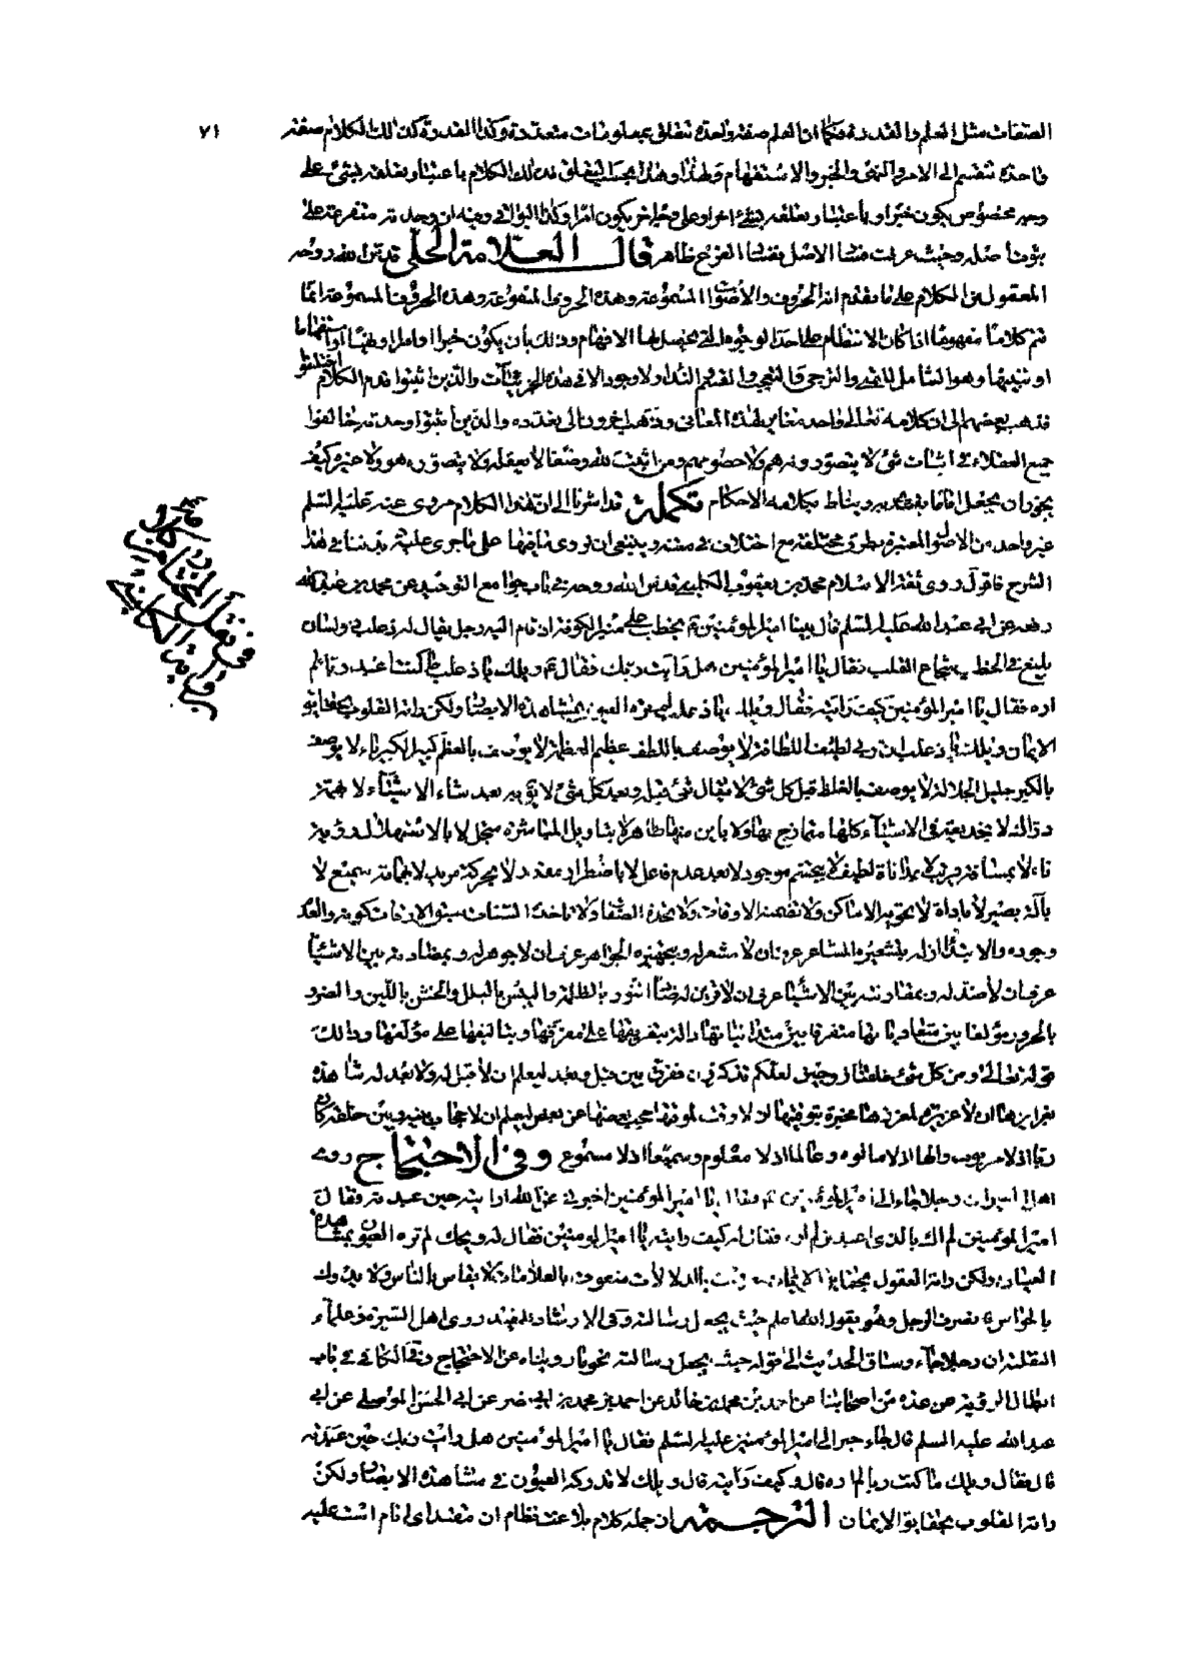 الصفات مثل العلم والقدرة فكما ان العلم صفة واحدة تتعلق بمعلومات متعددة وكذا القدرة كذلك الكلام صفة ٧١
واحدة تنقسم الى الامر والنهى والخبر والاستفهام وهذا بحسب التعلق فذلك الكلام باعتبار تعلقه بشئ على
وجه مخصوص يكون خبرا و باعتبار تعلقه بشئ اخر او على وجه اخر يكون امرا وكذا البواقى
قال العلامة الحلى قدس الله روحه
المعقول من الكلام على ما تقدم انه الحروف والاصوات المسموعة وهذه الحروف المسموعة انما
تتم كلاما مفهوما اذا كان الانتظام على احد الوجوه التى يحصل بها الافهام وذلك بان يكون خبرا او امرا او نهيا او استفهاما
او تنبيها وهو الشامل للتمنى والترجى والتعجب والقسم والنداء ولا وجود الا فى هذه الجزئيات والذين اثبتوا قدم الكلام اختلفوا
فذهب بعضهم الى ان كلامه تعالى واحد مغاير لهذه المعانى وذهب اخرون الى تعدده والذين اثبتوا وحدته خالفوا
جميع العقلاء فى اثبات شئ لا يتصورونه هم ولا خصومهم ومن اثبت لله وصفا لا يعقله ولا يتصوره هو ولا غيره كيف
يجوز ان يجعل اماما يقتدى به ويناط بكلامه الاحكام تكملة قد اشرنا الى ان هذا الكلام مروى عنه عليه السلم
فى غير واحد من الاصول المعتبرة بطرق مختلفة مع اختلاف فى متنه وينبغى ان نورد ما فيها على ما جرى عليه ديدننا فى هذا
الشرح فاقول روى ثقة الاسلام محمد بن يعقوب الكلينى قدس الله روحه فى باب جوامع التوحيد عن محمد بن عبدالله
رفعه عن ابى عبد الله عليه السلم قال بينا امير المؤمنين يخطب على منبر الكوفة اذ قام اليه رجل يقال له ذعلب ذو لسان
بليغ فى الخطب شجاع القلب فقال يا امير المؤمنين هل رايت ربك فقال ويلك يا ذعلب ما كنت اعبد ربا لم
اره فقال يا امير المؤمنين كيف رايته فقال ويلك يا ذعلب لم تره العيون بمشاهدة الابصار ولكن راته القلوب بحقايق
الايمان ويلك يا ذعلب ان ربى لطيف اللطافة لا يوصف باللطف عظيم العظمة لا يوصف بالعظم كبير الكبرياء لا يوصف
بالكبر جليل الجلالة لا يوصف بالغلظ قبل كل شئ لا يقال شئ قبله وبعد كل شئ لا يقال له بعد شاء الاشياء لا بهمة
دراك لا بخديعة فى الاشياء كلها غير متمازج بها ولا باين منها ظاهر لا بتاويل المباشرة متجل لا باستهلال رؤية
ناء لا بمسافة قريب لا بمداناة لطيف لا بتجسم موجود لا بعد عدم فاعل لا باضطرار مقدر لا بحركة مريد لا بهمامة سميع لا
بآلة بصير لا باداة لا تحويه الاماكن ولا تضمنه الاوقات ولا تحده الصفات ولا تاخذه السنات سبق الاوقات كونه والعدم
وجوده والابتداء ازله بتشعيره المشاعر عرف ان لا مشعر له وبتجهيره الجواهر عرف ان لا جوهر له وبمضادته بين الاشياء
عرف ان لا ضد له وبمقارنته بين الاشياء عرف ان لا قرين له ضاد النور بالظلمة واليبس بالبلل والخشن باللين والصرد
بالحرور مؤلف بين متعادياتها مفرق بين متدانياتها دالة بتفريقها على مفرقها وبتاليفها على مؤلفها وذلك
قوله تعالى ومن كل شئ خلقنا زوجين لعلكم تذكرون ففرق بين قبل وبعد ليعلم ان لا قبل له ولا بعد له شاهدة
بغرايزها ان لا غريزة لمغرزها مخبرة بتوقيتها ان لا وقت لموقتها حجب بعضها عن بعض ليعلم ان لا حجاب بينه وبين خلقه كان
ربا اذ لا مربوب والها اذ لا مالوه وعالما اذ لا معلوم وسميعا اذ لا مسموع وفى الاحتجاج روى
اهل السير ان رجلا جاء الى امير المؤمنين فقال يا امير المؤمنين اخبرنى عن الله ارايته حين عبدته فقال
امير المؤمنين لم اك بالذى اعبد من لم اره فقال له كيف رايته يا امير المؤمنين فقال له ويحك لم تره العيون بمشاهدة
العيان ولكن راته العقول بحقايق الايمان معروف بالدلالات منعوت بالعلامات لا يقاس بالناس ولا يدرك
بالحواس فانصرف الرجل وهو يقول الله اعلم حيث يجعل رسالته وفى الارشاد للمفيد روى اهل السيرة وعلماء
النقلة ان رجلا جاء وساق الحديث الى قوله حيث يجعل رسالته نحو ما رويناه عن الاحتجاج وفى الكافى فى باب
ابطال الرؤية عن عدة من اصحابنا عن احمد بن محمد بن خالد عن احمد بن محمد بن ابى نصر عن ابى الحسن الموصلى عن ابى
عبد الله عليه السلم قال جاء حبر الى امير المؤمنين عليه السلم فقال يا امير المؤمنين هل رايت ربك حين عبدته
قال فقال ويلك ما كنت اعبد ربا لم اره قال وكيف رايته قال ويلك لا تدركه العيون فى مشاهدة الابصار ولكن
راته القلوب بحقايق الايمان الترجمة از جمله كلام بلاغت نظام ان مقتداى انام است عليه